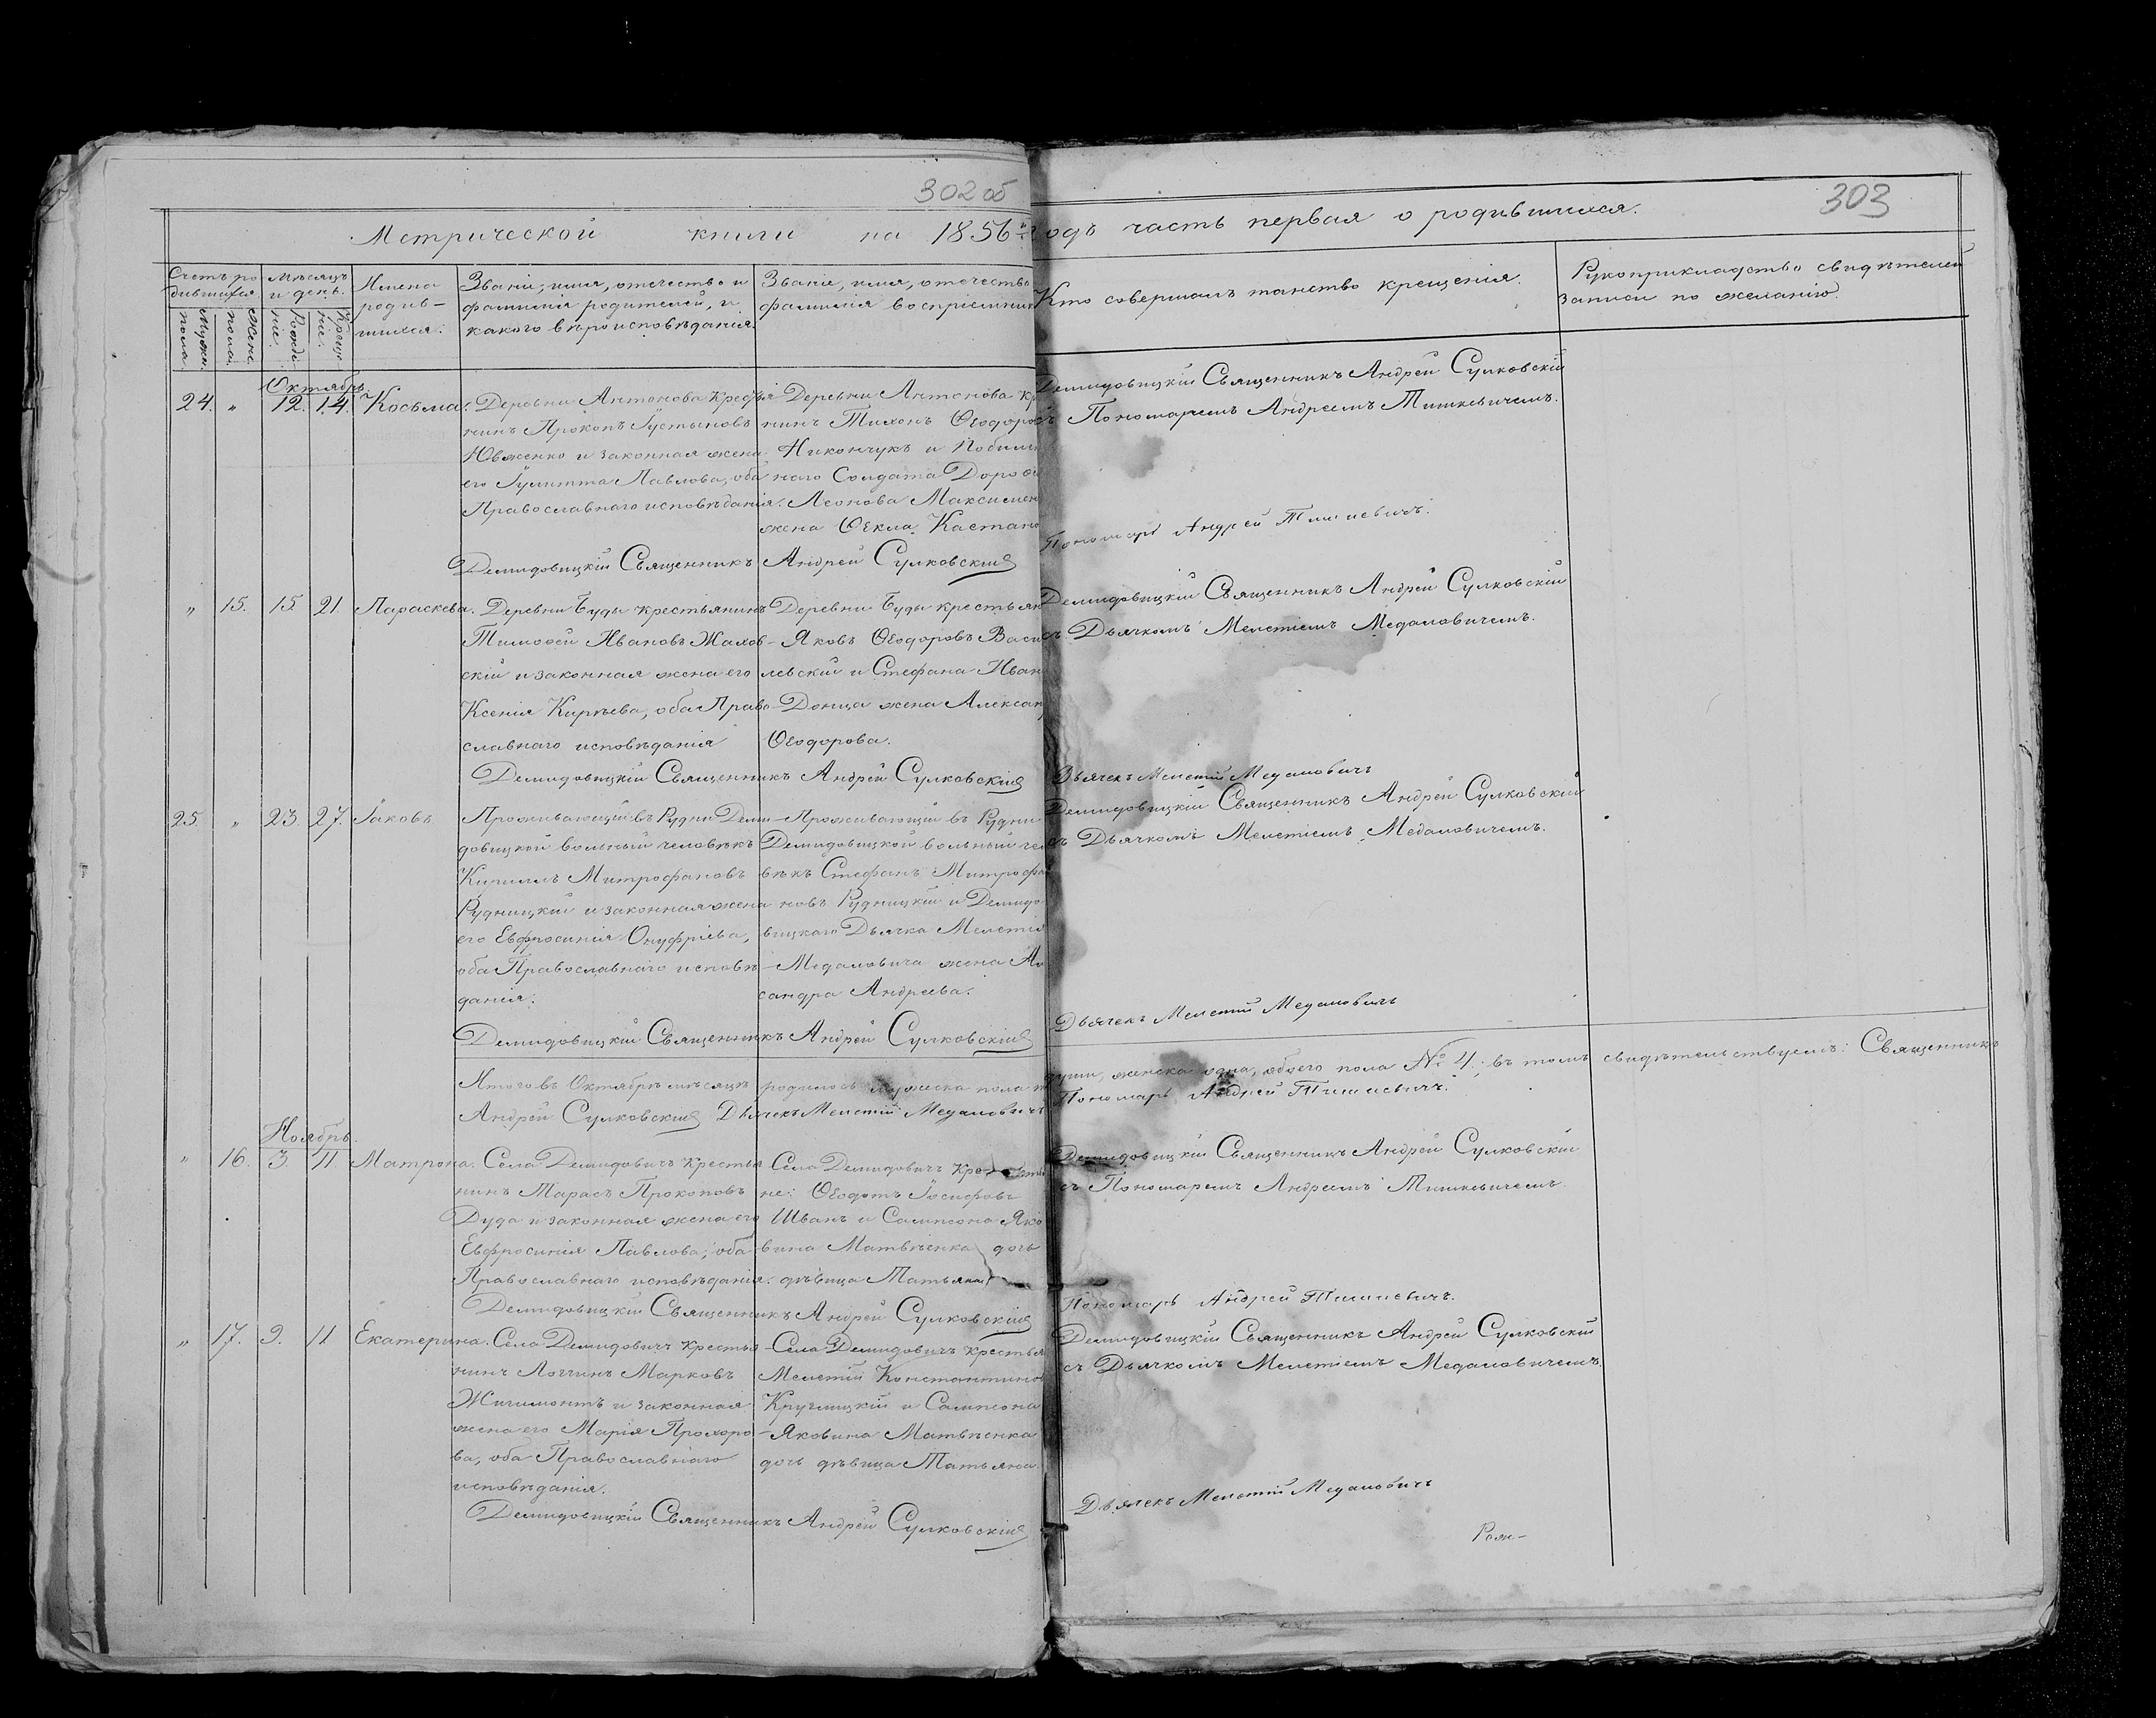 302 об
303
Метрической книги на 1856й годъ часть первая о родившихся.
Счетъ ро-
дившихся.
Мужес. пола
Женс. пола.
Мѣсяцъ
и день.
Рожденіе.
Крещеніе.
Имена
родив-
шихся.
Званіе, имя, отечество и
фамилія родителей, и
какого вѣроисповѣданія.
Званіе, имя, отечество
фамилія воспріемник
Кто совершалъ таинство крещенія.
Рукоприкладство свидѣтелей
записи по желанію.
Октябрь.
24. „ 12. 14. Косьма.
Деревни Антонова крестья
нинъ Прокопъ Іустиновъ
Ювженко и законная жена
его Іулитта Павлова, оба
Православнаго исповѣданія.
Деревни Антонова кр
нинъ Тихонъ Ѳеодоро
Никончукъ и
наго Солдата
Леонова Максимен
жена Ѳекла
Демидовицкій Священникъ Андрей Сулковскій
Демидовицкій Священникъ Андрей Сулковскій
съ Пономаремъ Андреемъ Тишкевичемъ.
Пономарь Андрей Тишкевичъ.
„ 15. 15 21. Параскева.
Деревни Буды крестьянинъ
Тимоѳей Ивановъ Жахов-
скій и законная жена его
Ксенія Кирѣева, оба Право-
славнаго исповѣданія
Деревни Буды крестьян
Яковъ Ѳеодоровъ Васи
левскій и Стефана Иван
Донца жена Алексан
Ѳеодорова.
Демидовицкій Священникъ Андрей Сулковскій
Демидовицкій Священникъ Андрей Сулковскій
съ Дьячкомъ Мелетіемъ Медаловичемъ.
Дьячекъ Мелетій Медаловичъ
25. „ 23. 27. Іаковъ
Проживающій въ Рудни Деми-
довицкой вольный человѣкъ
Кириллъ Митрофановъ
Рудницкій и законная жена
его Евфросинія Онуфріева,
оба Православнаго исповѣ-
данія.
Проживающій въ Рудни
Демидовицкой вольный чело
вѣкъ Стефанъ Митрофа
новъ Рудницкій и Демидо
вицкаго Дьячка Мелетія
Медаловича жена Ал
сандра Андреева.
Демидовицкій Священникъ Андрей Сулковскій
Демидовицкій Священникъ Андрей Сулковскій
съ Дьячкомъ Мелетіемъ Медаловичемъ.
Дьячекъ Мелетій Медаловичъ
Итого въ Октябрѣ мѣсяцѣ родилось мужеска пола души, женска одна, обоего пола № 4. въ томъ свидѣтельствуемъ: Священникъ
Андрей Сулковскій Дьячекъ Мелетій Медаловичъ Пономарь Андрей Тишкевичъ.
Ноябрь.
„ 16. 3. 11. Матрона.
Села Демидовичъ крестья
нинъ Тарасъ Прокоповъ
Дуда и законная жена его
Евфросинія Павлова, оба
Православнаго исповѣданія.
Села Демидовичъ крестья
не: Ѳеодотъ Іосифовъ
Шванъ и Сампсона Яко
вина Матвѣенка дочь
дѣвица Татьяна
Демидовицкій Священникъ Андрей Сулковскій
Демидовицкій Священникъ Андрей Сулковскій
съ Пономаремъ Андреемъ Тишкевичемъ.
Пономарь Андрей Тишкевичъ.
„ 17. 9. 11 Екатерина.
Села Демидовичъ крестья
нинъ Логгинъ Марковъ
Жигимонтъ и законная
жена его Марія Прохоро-
ва, оба Православнаго
исповѣданія.
Села Демидовичъ крестья
Мелетій Константинов
Круглицкій и Сампсона
Яковина Матвѣенка
дочь дѣвица Татьяна.
Демидовицкій Священникъ Андрей Сулковскій
Демидовицкій Священникъ Андрей Сулковскій
съ Дьячкомъ Мелетіемъ Медаловичемъ.
Дьячекъ Мелетій Медаловичъ
Рож-